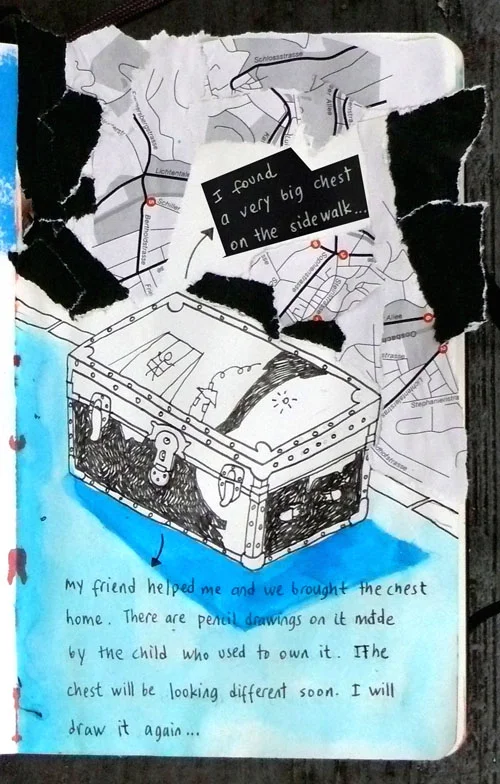 Schlossstrasse
Allee
Lichtental
Schiller
Bertholdstrasse
I found
a very big chest
on the sidewalk...
Sophienstrasse
Allee
strasse
Stephanienstra
My friend helped me and we brought the chest
home. There are pencil drawings on it made
by the child who used to own it. The
chest will be looking different soon. I will
draw it again...